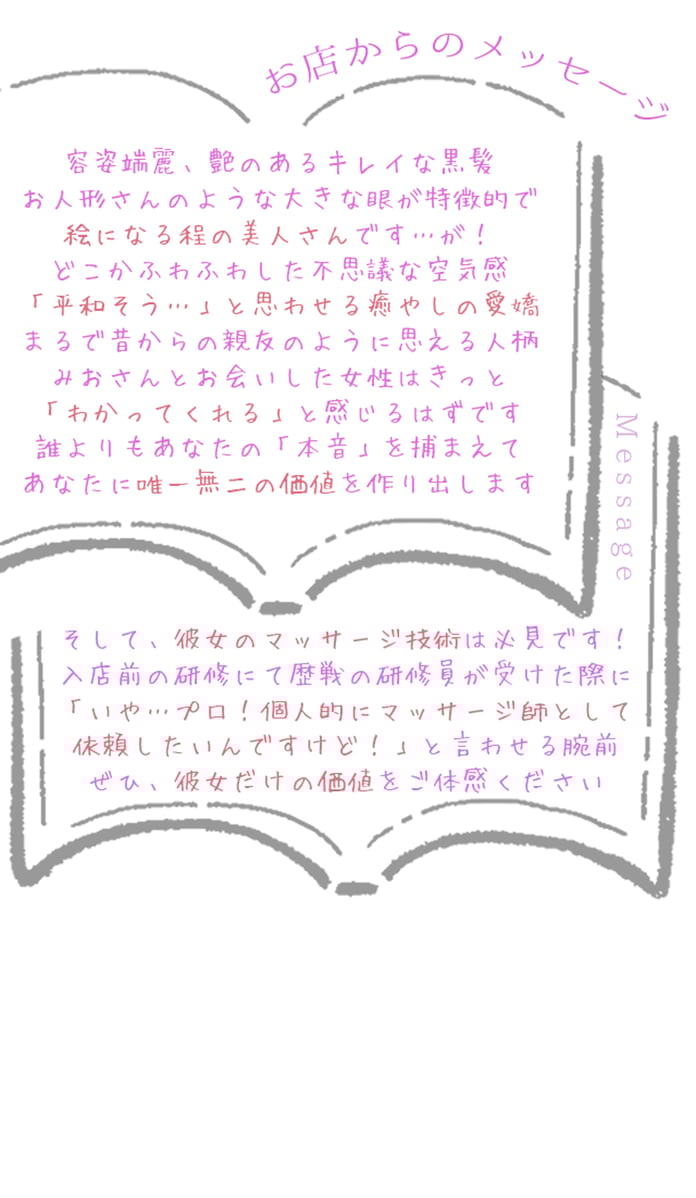 お店からのメッセージ
容姿端麗、艶のあるキレイな黒髪
お人形さんのような大きな眼が特徴的で
絵になる程の美人さんです…が！
どこかふわふわした不思議な空気感
「平和そう…」と思わせる癒やしの愛嬌
まるで昔からの親友のように思える人柄
みおさんとお会いした女性はきっと
「わかってくれる」と感じるはずです
誰よりもあなたの「本音」を捕まえて
あなたに唯一無二の価値を作り出します
Message
そして、彼女のマッサージ技術は必見です！
入店前の研修にて歴戦の研修員が受けた際に
「いや…プロ！個人的にマッサージ師として
依頼したいんですけど！」と言わせる腕前
ぜひ、彼女だけの価値をご体感ください